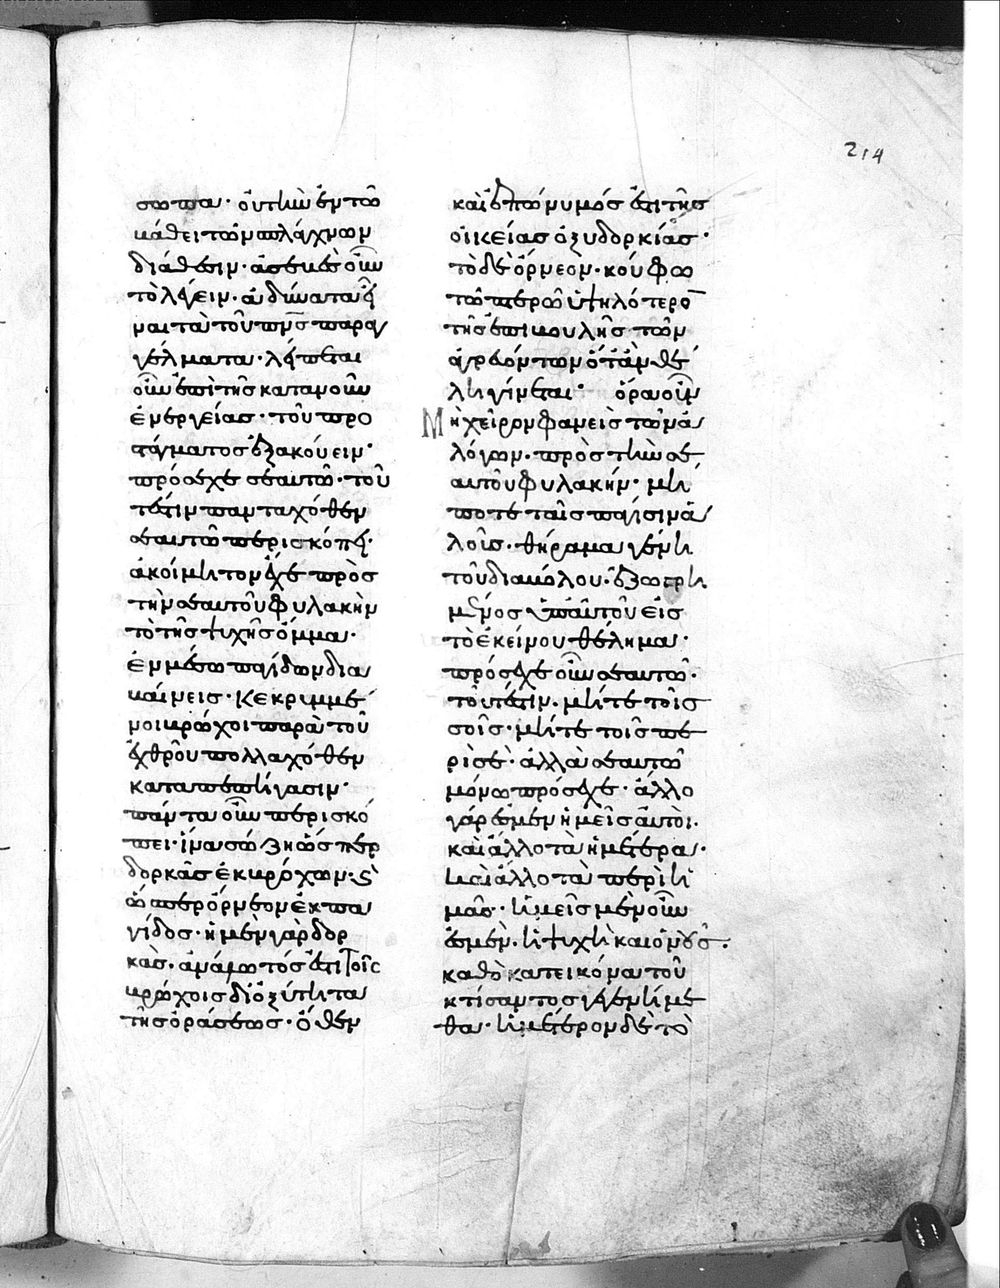 214
σωπα· οὐ τὴν ἐν τῶ
βάθει τῶν σπλάγχνων
διάθεσιν· ἀσεβὲς οὖν
τὸ λέγειν· ἀδύνατα εἶ
ναι τὰ τοῦ πνς παραγ
γέλματα· λείπεται
οὖν ἐπὶ τῆς κατα νοῦν
ἐνεργείας· τοῦ προ
στάγματος ἐξακούειν·
πρόσεχε σεαυτῶ· του
τέστιν πανταχόθεν
σεαυτὸν περισκόπει·
ἀκοίμητον ἔχε πρὸς
τὴν σεαυτοῦ φυλακὴν
τὸ τῆς ψυχῆς ὄμμα·
ἐν μέσω παγίδων δια
βαίνεις· κεκρυμμέ
νοι βρόχοι παρὰ τοῦ
ἐχθροῦ πολλαχόθεν
καταπεπήγασιν·
πάντα οὖν περισκό
πει· ἵνα σώζη ὥσπερ
δορκὰς ἐκ βρόχων· ϗ
ὥσπερ ὄρνεον ἐκ πα
γίδος· ἡ μὲν γὰρ δορ
κὰς· ἀνάλωτός ἐστι τοῖς
βρόχοις δι' ὀξύτητα
τῆς ὁράσεως· ὅθεν
καὶ ἐπώνυμός ἐστι τῆς
οἰκείας ὀξυδορκίας·
τὸ δὲ ὄρνεον· κούφω
τῶ πτερῶ ὑψηλότερο
τῆς ἐπιβουλῆς τῶν
ἀγρευόντων ὅτ' ἂν θέ
λη γίνεται· ὅρα οὖν
Μὴ χείρων φανεὶς τῶν ἀ
λόγων· πρὸς τὴν σε
αυτοῦ φυλακήν· μή
ποτε ταῖς παγίσιν ἁ
λοῖς· θήραμα γένη
τοῦ διαβόλου· ἐζωγρη
μένος ὑπ' αὐτοῦ εἰς
τὸ ἐκείνου θέλημα·
πρόσεχε οὖν σεαυτῶ·
τουτέστιν· μήτε τοῖς
σοῖς· μήτε τοῖς πε
ρὶ σὲ· ἀλλὰ σεαυτῶ
μόνω πρόσεχε· ἄλλο
γάρ ἐσμεν ἡμεῖς αὐτοὶ·
καὶ ἄλλο τὰ ἡμέτερα·
καὶ ἄλλο τὰ περὶ ἡ
μᾶς· ἡμεῖς μὲν οὖν
ἐσμὲν· ἡ ψυχὴ καὶ ὁ νοῦς·
καθὸ κατ' εἰκόνα τοῦ
κτίσαντος γεγενήμε
θα· ἡμέτερον δὲ τὸ